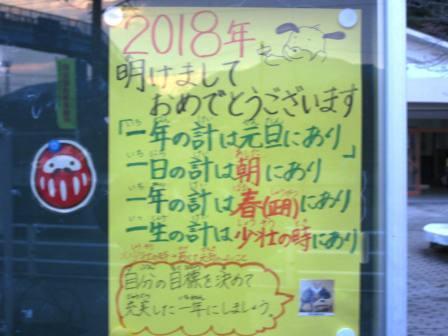 2018年
明けまして
おめでとうございます
「一年の計は元旦にあり」
一日の計は朝にあり
一年の計は春(正月)にあり
一生の計は少壮の時にあり
自分の目標を決めて
充実した一年にしましょう。